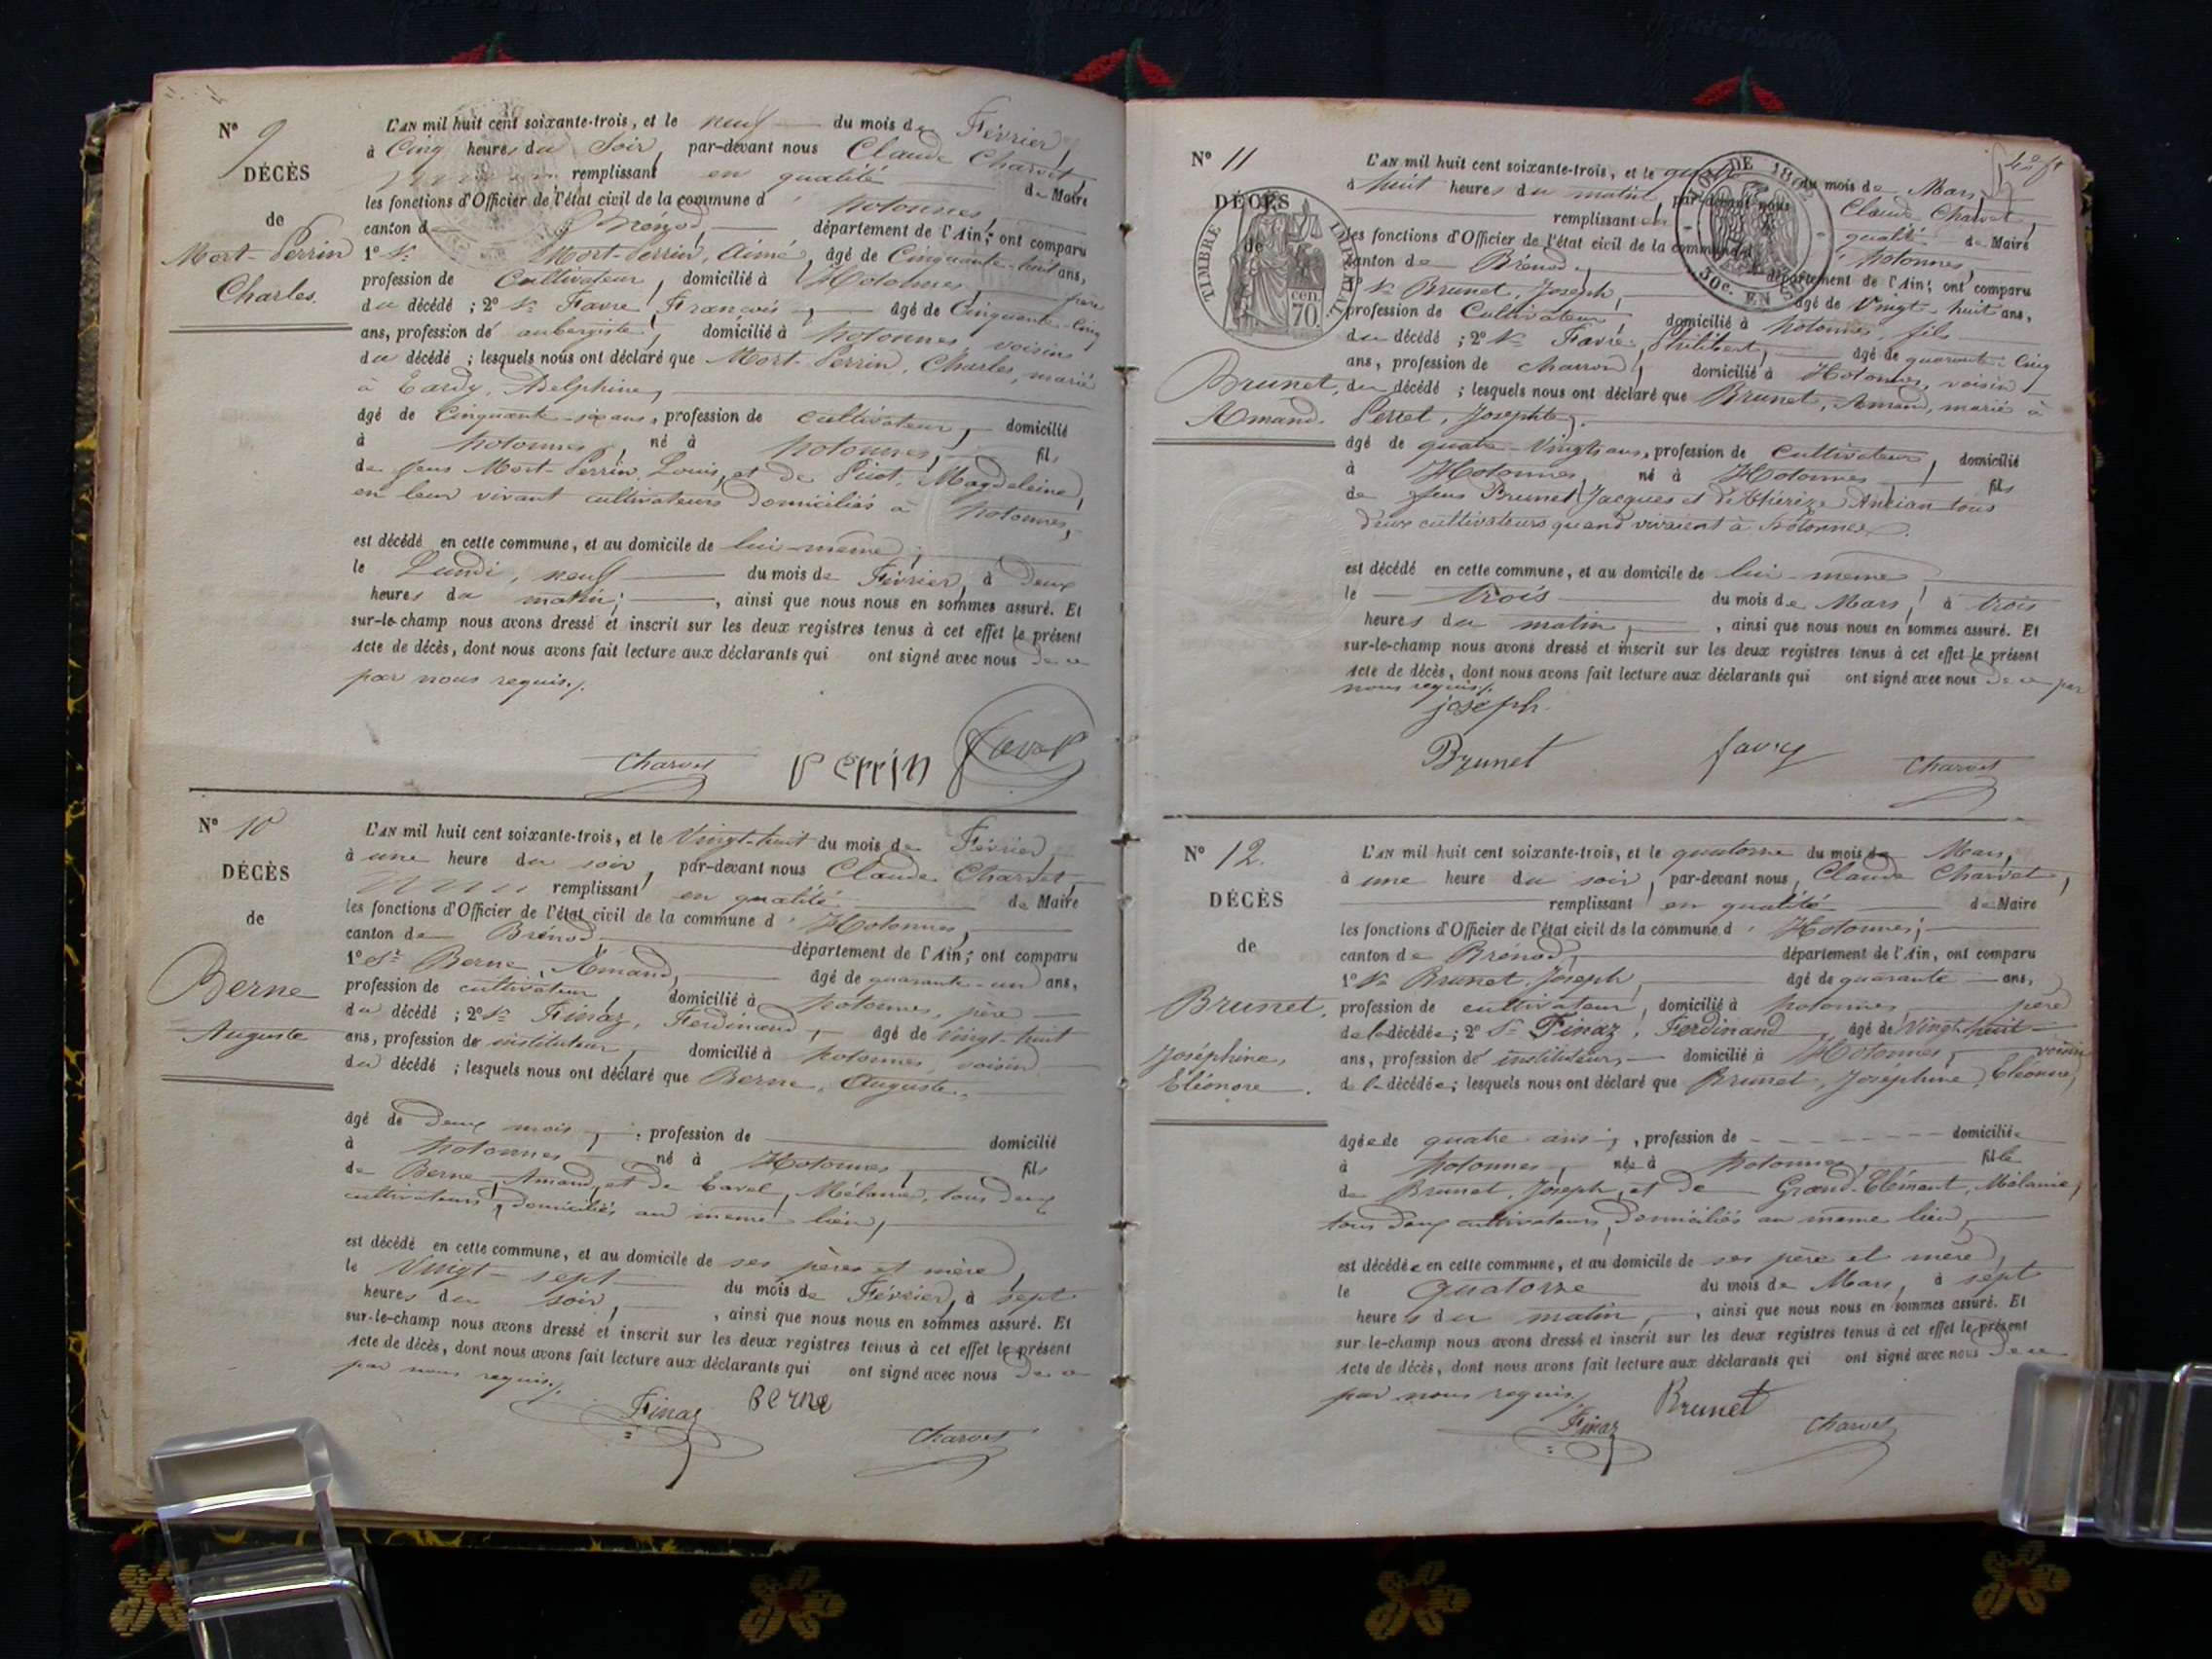 N° 9
DÉCÈS
de
Mort-Perrin
Charles.
L'AN mil huit cent soixante-trois, et le neuf du mois de Février,
à Cinq heures du Soir, par-devant nous Claude Charvet,
remplissant en qualité de Maire
les fonctions d'Officier de l'état civil de la commune d' hotonnes,
canton de Brénod, département de l'Ain; ont comparu
1° Sr Mort-Perrin, Aimé, âgé de Cinquante-huit ans,
profession de Cultivateur, domicilié à Hotonnes, frère
du décédé; 2° Sr Favre, François, âgé de Cinquante-Cinq
ans, profession de aubergiste, domicilié à hotonnes voisin
du décédé; lesquels nous ont déclaré que Mort-Perrin, Charles, marié
à Tardy, Adelphine,
âgé de Cinquante-six ans, profession de cultivateur, domicilié
à hotonnes, né à hotonnes, fils
de feus Mort-Perrin, Louis, et de Picot, Magdeleine,
en leur vivant cultivateurs domiciliés à hotonnes,
est décédé en cette commune, et au domicile de lui-même;
le Lundi, neuf du mois de Février, à Deux
heures du matin; , ainsi que nous nous en sommes assuré. Et
sur-le-champ nous avons dressé et inscrit sur les deux registres tenus à cet effet le présent
Acte de décès, dont nous avons fait lecture aux déclarants qui ont signé avec nous de ce
par nous requis./.
Charvet Perrin
N° 10
DÉCÈS
de
Berne
Auguste
L'AN mil huit cent soixante-trois, et le Vingt-huit du mois de Février,
à une heure du soir, par-devant nous Claude Charvet,
remplissant en qualité de Maire
les fonctions d'Officier de l'état civil de la commune d' Hotonnes,
canton de Brénod département de l'Ain; ont comparu
1° Sr Berne, Amand, âgé de quarante-un ans,
profession de cultivateur, domicilié à hotonnes, père
du décédé; 2° Sr Finaz, Ferdinand, âgé de Vingt-huit
ans, profession de instituteur, domicilié à hotonnes, voisin
du décédé; lesquels nous ont déclaré que Berne, Auguste,
âgé de Deux mois, profession de domicilié
à hotonnes né à Hotonnes, fils
de Berne, Amand, et de Cavel, Mélanie, tous deux
cultivateurs, domiciliés au même lieu,
est décédé en cette commune, et au domicile de ses pères et mère,
le Vingt-sept du mois de Février, à sept
heures du soir, , ainsi que nous nous en sommes assuré. Et
sur-le-champ nous avons dressé et inscrit sur les deux registres tenus à cet effet le présent
Acte de décès, dont nous avons fait lecture aux déclarants qui ont signé avec nous de ce
par nous requis./.
Finaz Berne Charvet
N° 11
DÉCÈS
de
TIMBRE IMPÉRIAL
70 cen.
LOI DE 1862
50c. EN SUS
Brunet,
Amand.
L'AN mil huit cent soixante-trois, et le du mois de Mars,
à huit heures du matin, par-devant nous Claude Charvet,
remplissant en qualité de Maire
les fonctions d'Officier de l'état civil de la commune d' hotonnes,
canton de Brénod, département de l'Ain; ont comparu
1° Sr Brunet, Joseph, âgé de Vingt-huit ans,
profession de Cultivateur, domicilié à hotonnes, fils
du décédé; 2° Sr Favre, Philibert, âgé de quarante-Cinq
ans, profession de charron, domicilié à Hotonnes, voisin
du décédé; lesquels nous ont déclaré que Brunet, Amand, marié à
Perret, Josephte,
âgé de quatre-Vingts ans, profession de Cultivateur, domicilié
à Hotonnes, né à Hotonnes, fils
de feus Brunet Jacques et d'Thérèze Ancian tous
deux cultivateurs quand vivaient à hotonnes.
est décédé en cette commune, et au domicile de lui-même
le trois du mois de Mars, à trois
heures du matin, , ainsi que nous nous en sommes assuré. Et
sur-le-champ nous avons dressé et inscrit sur les deux registres tenus à cet effet le présent
Acte de décès, dont nous avons fait lecture aux déclarants qui ont signé avec nous de ce par
nous requis./.
joseph.
Brunet favre Charvet
N° 12.
DÉCÈS
de
Brunet,
Joséphine,
Eléonore.
L'AN mil huit cent soixante-trois, et le quatorze du mois de Mars,
à une heure du soir, par-devant nous, Claude Charvet,
remplissant en qualité de Maire
les fonctions d'Officier de l'état civil de la commune d' Hotonnes;
canton de Brénod, département de l'Ain, ont comparu
1° Sr Brunet, Joseph, âgé de quarante ans,
profession de cultivateur, domicilié à hotonnes, père
de la décédée; 2° Sr Finaz, Ferdinand âgé de Vingt-huit
ans, profession de instituteur, domicilié à Hotonnes, voisin
de la décédée; lesquels nous ont déclaré que Brunet, Joséphine, Eléonore,
âgée de quatre ans, profession de domiciliée
à hotonnes, née à hotonnes, fille
de Brunet, Joseph, et de Grand-Clément, Mélanie,
tous deux cultivateurs, domiciliés au même lieu,
est décédée en cette commune, et au domicile de ses père et mère,
le quatorze du mois de Mars, à sept
heures du matin, , ainsi que nous nous en sommes assuré. Et
sur-le-champ nous avons dressé et inscrit sur les deux registres tenus à cet effet le présent
Acte de décès, dont nous avons fait lecture aux déclarants qui ont signé avec nous de ce
par nous requis./.
Finaz Brunet Charvet